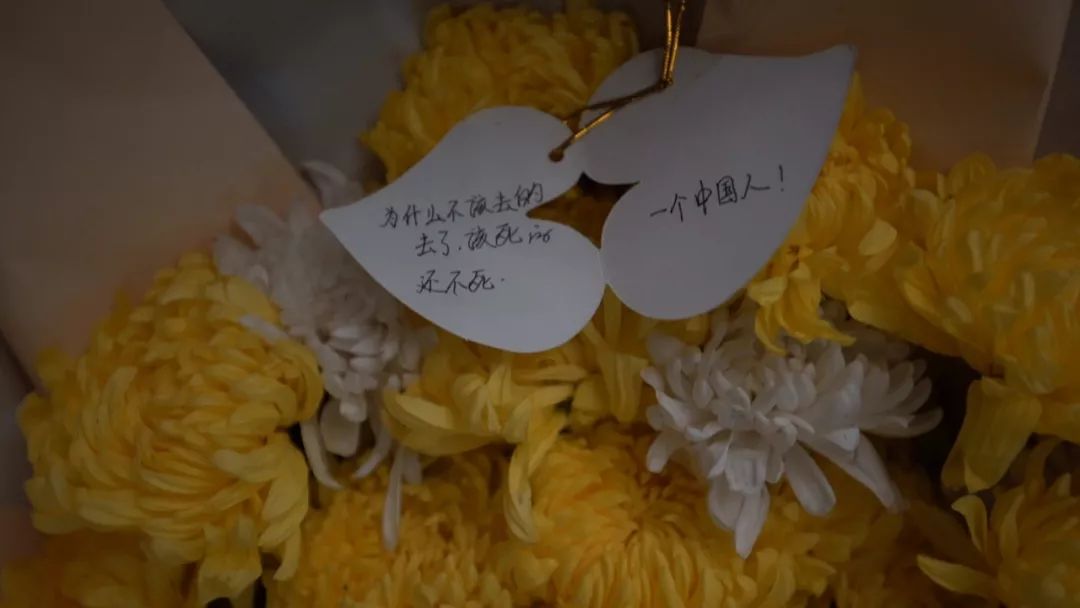 为什么不该去的
去了，该死的
还不死.
一个中国人！